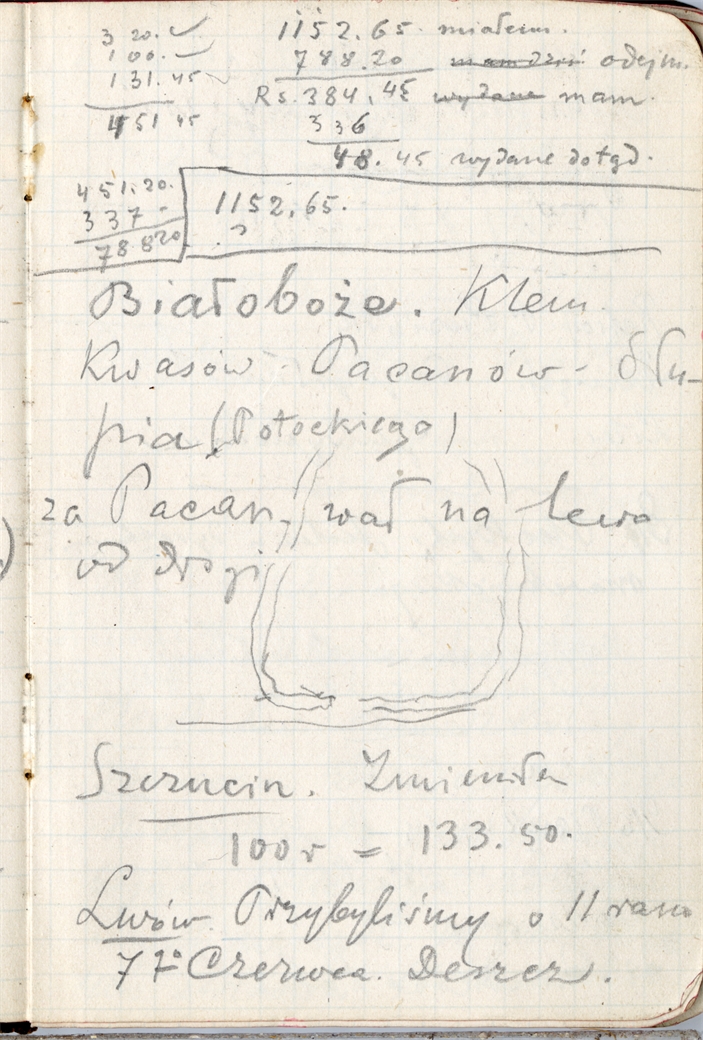 320.
100.
131.45
451 45
1152.65 miałem.
788.20 odejm.
Rs. 384,45 wydane mam.
336
48.45 wydane dotąd.
451.20.
337 -
788 20
1152.65.
?
Białoboże. Klem.
Kwasów - Pacanów - Słu-
pia (Potockiego)
za Pacan. wał na lewo
od drogi
Szczucin. Zmieniłem
100 r = 133.50.
Lwów Przybyliśmy o 11 rano
7 Czerwca. Deszcz.